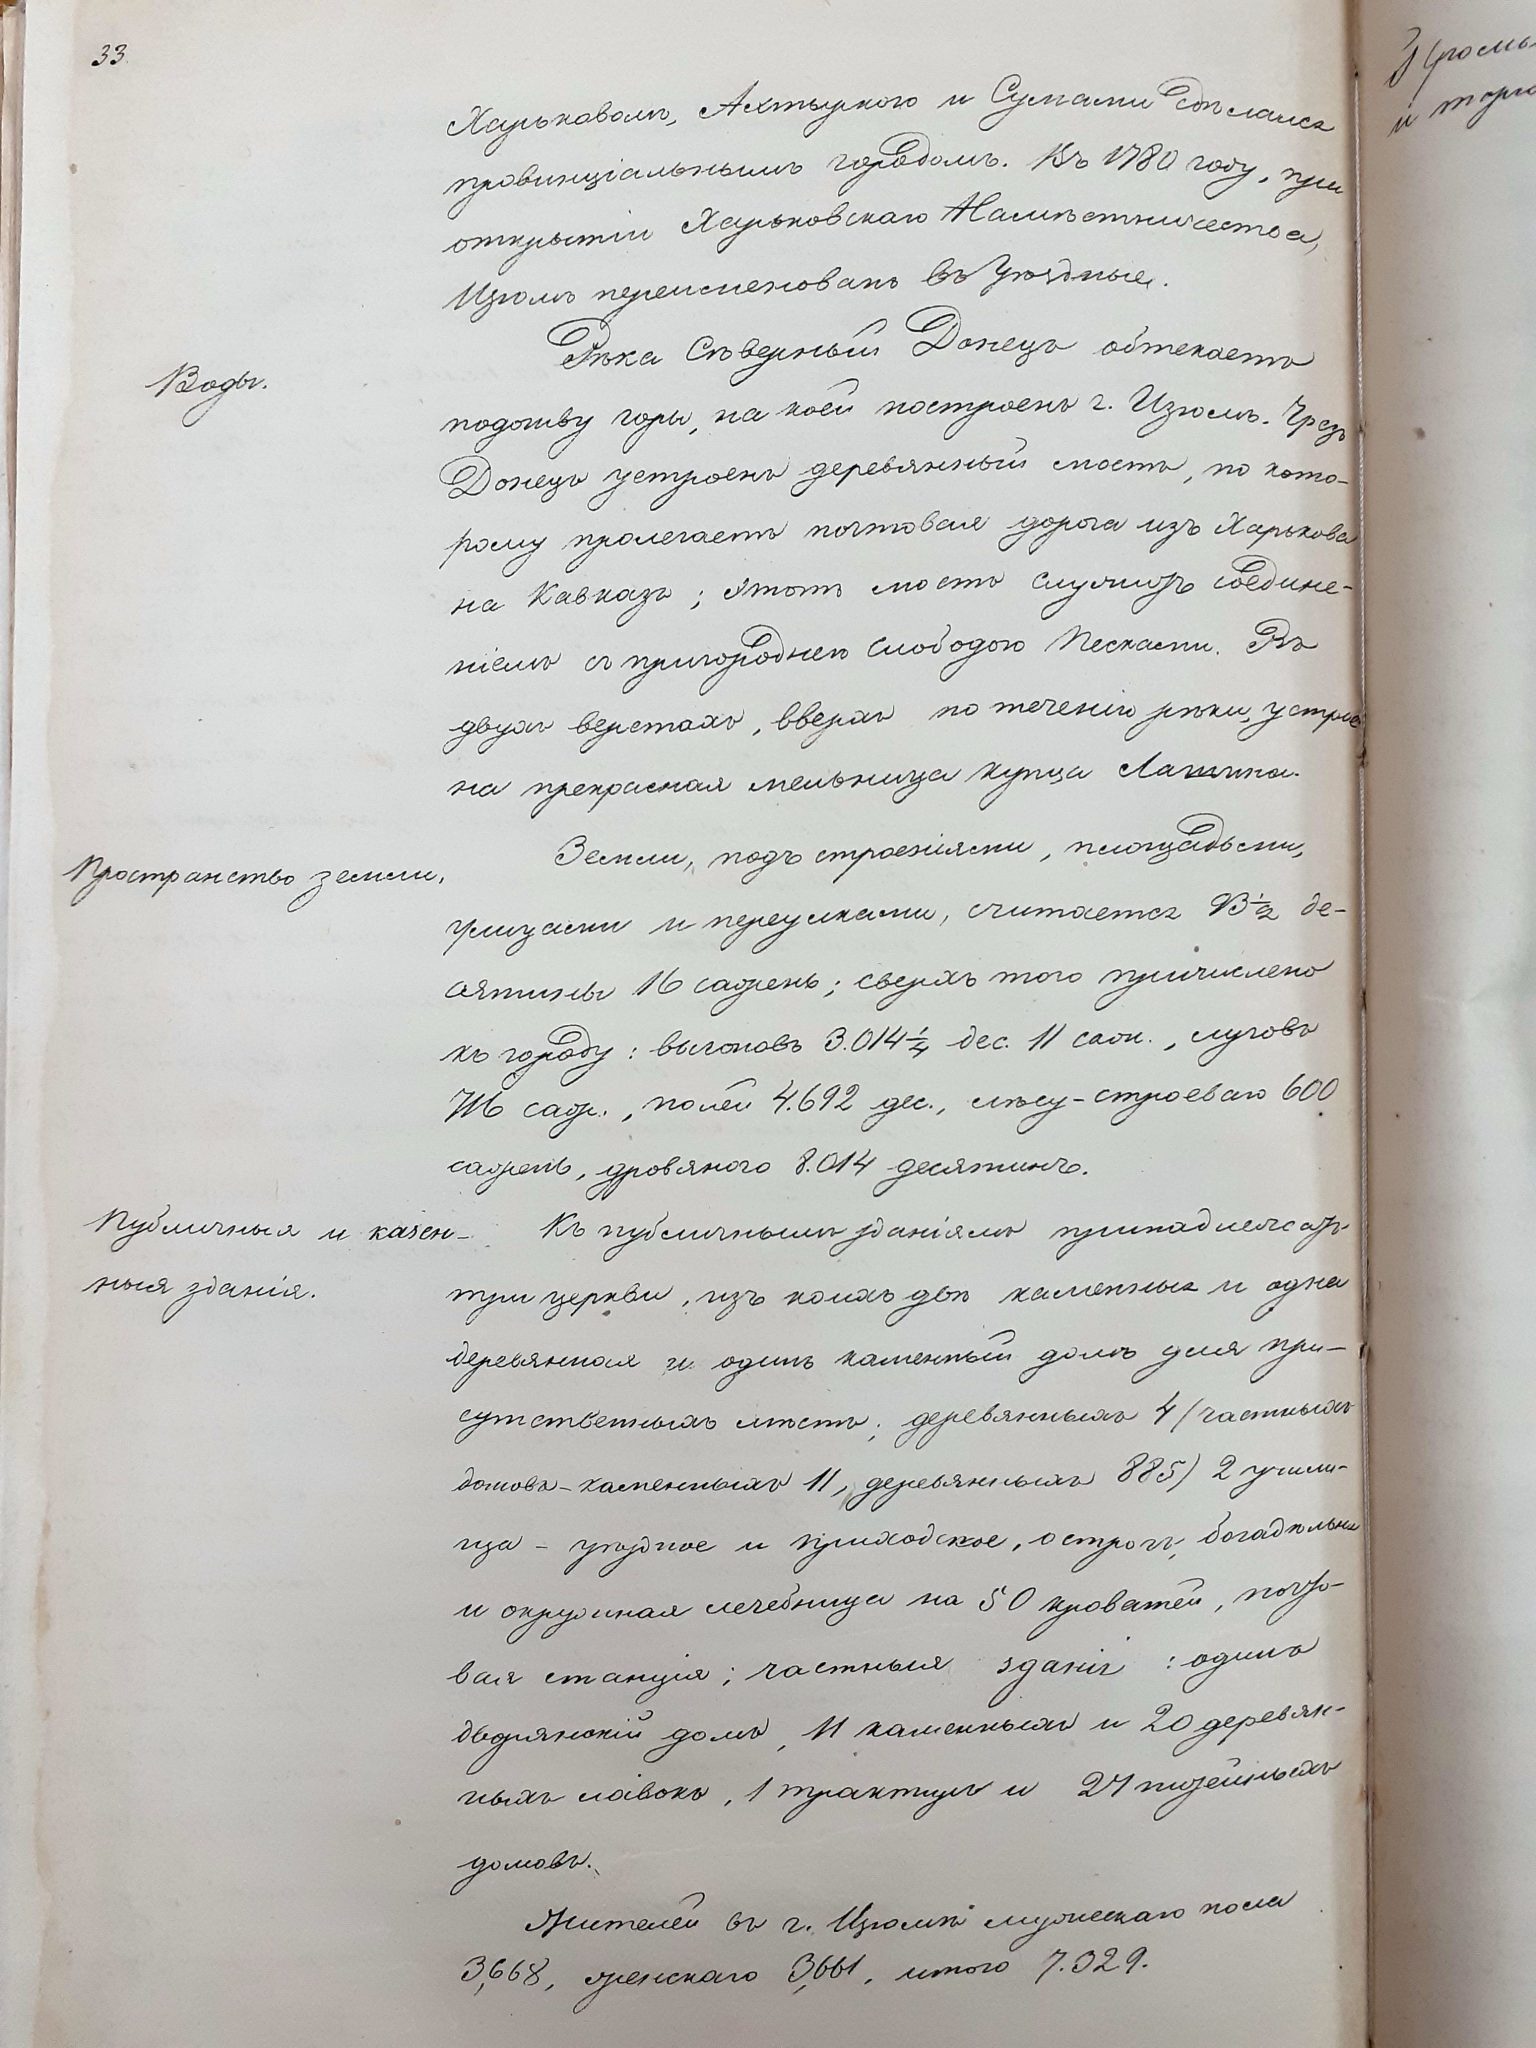 33.
Харьковомъ, Ахтыркою и Сумами сдѣлался
провинціальнымъ городомъ. Въ 1780 году, при
открытіи Харьковскаго Намѣстничества,
Изюмъ переименованъ въ Уѣздные.
Воды.
Рѣка Сѣверный Донецъ обтекаетъ
подошву горы, на коей построенъ г. Изюмъ. Чрезъ
Донецъ устроенъ деревянный мостъ, по кото-
рому пролегаетъ почтовая дорога изъ Харькова
на Кавказъ; этотъ мостъ служитъ соедине-
ніемъ съ пригороднею слободою Песками. Въ
двухъ верстахъ, вверхъ по теченію рѣки, устрое
на прекрасная мельница купца
Пространство земли,
Земли, подъ строеніями, площадьми,
улицами и переулками, считается де-
сятины 16 сажень; сверхъ того причислено
къ городу: выгоновъ 3.014 1/4 дес. 11 саж., луговъ
саж., полей 4.692 дес., лѣсу-строеваго 600
сажень, дровяного 8.014 десятинъ.
Публичныя и казен-
ныя зданія.
Къ публичнымъ зданіямъ принадлежатъ
три церкви, изъ коихъ двѣ каменныя и одна
деревянная и одинъ каменный домъ для при-
сутственныхъ мѣстъ; деревянныхъ 4 (частныхъ
домовъ-каменныхъ 11, деревянныхъ 885) 2 учили-
ща - уѣздное и приходское, острогъ, богадѣльня
и окружная лечебница на 50 кроватей, почто-
вая станція; частныя зданія: одинъ
дворянскій домъ, 11 каменныхъ и 20 деревян-
ныхъ лавокъ, 1 трактиръ и питейныхъ
домовъ.
Жителей въ г. Изюмѣ мужескаго пола
3,668, женскаго 3,661, итого 7.329.